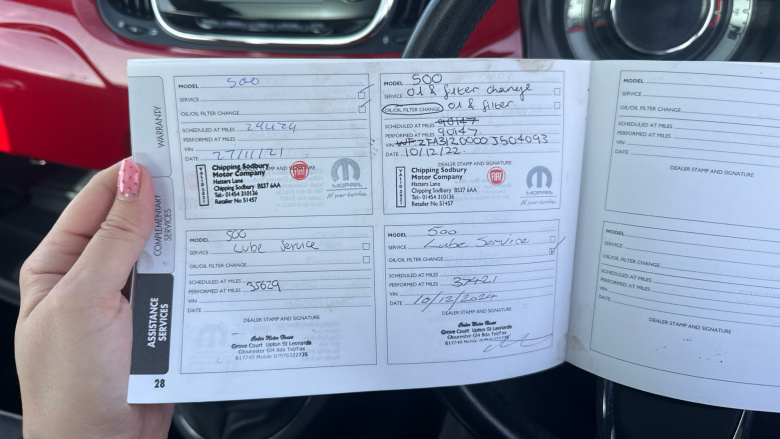 WARRANTY
COMPLEMENTARY
SERVICES
ASSISTANCE
SERVICES
MODEL 500
SERVICE
OIL/OIL FILTER CHANGE
SCHEDULED AT MILES 29424
PERFORMED AT MILES
VIN
DATE 27/11/21
DEALER STAMP AND SIGNATURE
VALIDEZ
Chipping Sodbury
Motor Company
Hatters Lane
Chipping Sodbury BS37 6AA
Tel:- 01454 310136
Retailer No 51457
FIAT
MOPAR
MODEL 500
SERVICE Oil & filter change
OIL/OIL FILTER CHANGE Oil & filter
SCHEDULED AT MILES 90147
PERFORMED AT MILES 90147
VIN WF ZFA3120000J504093
DATE 10/12/22
DEALER STAMP AND SIGNATURE
Chipping Sodbury
Motor Company
Hatters Lane
Chipping Sodbury BS37 6AA
Tel:- 01454 310136
Retailer No 51457
FIAT
MOPAR
MODEL 500
SERVICE Lube Service
OIL/OIL FILTER CHANGE
SCHEDULED AT MILES
PERFORMED AT MILES 35629
VIN
DATE
DEALER STAMP AND SIGNATURE
Grove Court Upton St Leonards
Gloucester Gl4 8da Tel/Fax
MODEL 500
SERVICE Lube Service
OIL/OIL FILTER CHANGE
SCHEDULED AT MILES
PERFORMED AT MILES 37421
VIN
DATE 10/12/2024
DEALER STAMP AND SIGNATURE
Grove Court Upton St Leonards
Gloucester Gl4 8da Tel/Fax
MODEL
SERVICE
OIL/OIL FILTER CHANGE
SCHEDULED AT MILES
PERFORMED AT MILES
VIN
DATE
DEALER STAMP AND SIGNATURE
MODEL
SERVICE
OIL/OIL FILTER CHANGE
SCHEDULED AT MILES
PERFORMED AT MILES
VIN
DATE
DEALER STAMP AND SIGNATURE
28